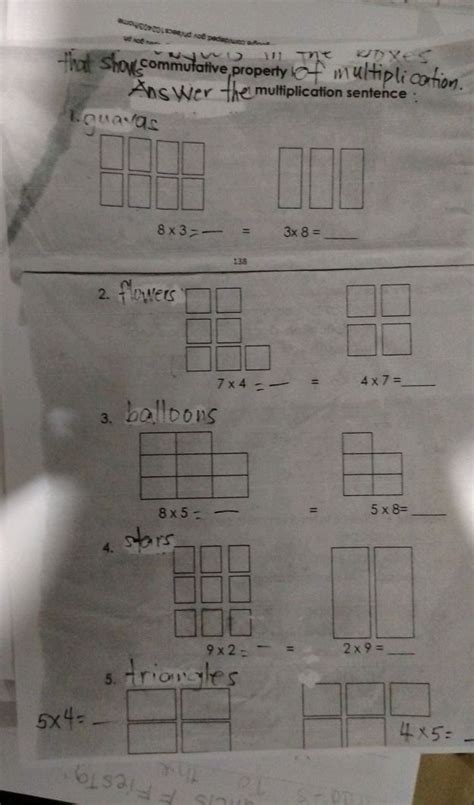 in the boxes
that shows commutative property of multiplication.
Answer the multiplication sentence :
1. guavas
8 x 3 = __ = 3x 8 = ____
138
2. flowers
7 x 4 = __ = 4 x 7 =____
3. balloons
8 x 5 = __ = 5 x 8= ____
4. stars
9 x 2 = __ = 2 x 9 = ____
5. triangles
5x4= __ 4 x5= _